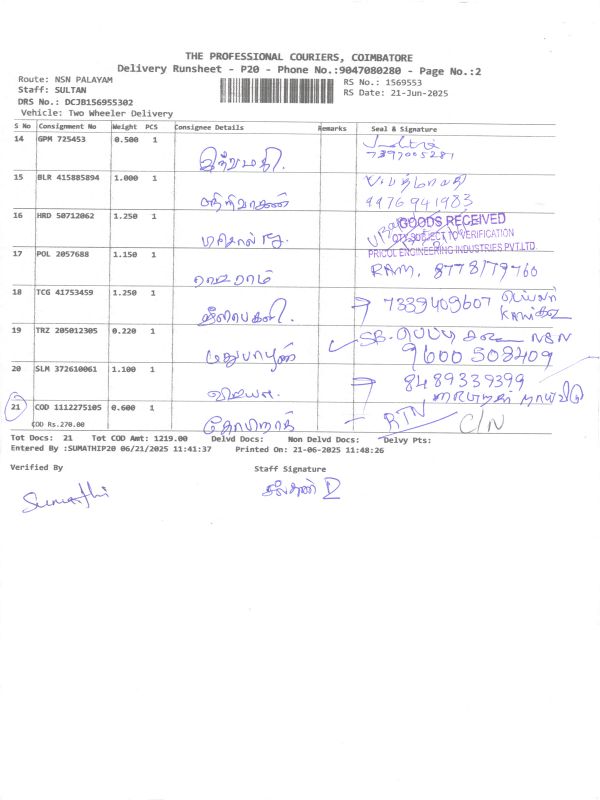 THE PROFESSIONAL COURIERS, COIMBATORE
Delivery Runsheet - P20 - Phone No.:9047080280 - Page No.:2
Route: NSN PALAYAM
RS No.: 1569553
Staff: SULTAN
RS Date: 21-Jun-2025
DRS No.: DCJB156955302
Vehicle: Two Wheeler Delivery
S No Consignment No Weight PCS Consignee Details Remarks Seal & Signature
14 GPM 725453 0.500 1
இந்துமதி.
7397005281
15 BLR 415885894 1.000 1
9976941983
16 HRD 50712062 1.250 1
GOODS RECEIVED
QTY SUBJECT TO VERIFICATION
PRICOL ENGINEERING INDUSTRIES PVT.LTD.
17 POL 2057688 1.150 1
RAM, 8778179760
18 TCG 41753459 1.250 1
7339409607
19 TRZ 205012305 0.220 1
NSN
9600508409
20 SLM 372610061 1.100 1
8489339399
21 COD 1112275105 0.600 1
COD Rs.270.00
RTN C/N
Tot Docs: 21 Tot COD Amt: 1219.00 Delvd Docs: Non Delvd Docs: Delvy Pts:
Entered By :SUMATHIP20 06/21/2025 11:41:37 Printed On: 21-06-2025 11:48:26
Verified By Staff Signature
Sumathi